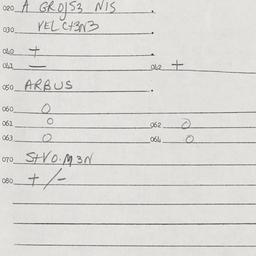 020 A GROJS3 NIS.
030 VELCT3N3.
040 +.
041 — 042 +
050 ARBUS.
060 O
061 O 062 O
063 O 064 O
070 S+VO.M3N
080 + /-